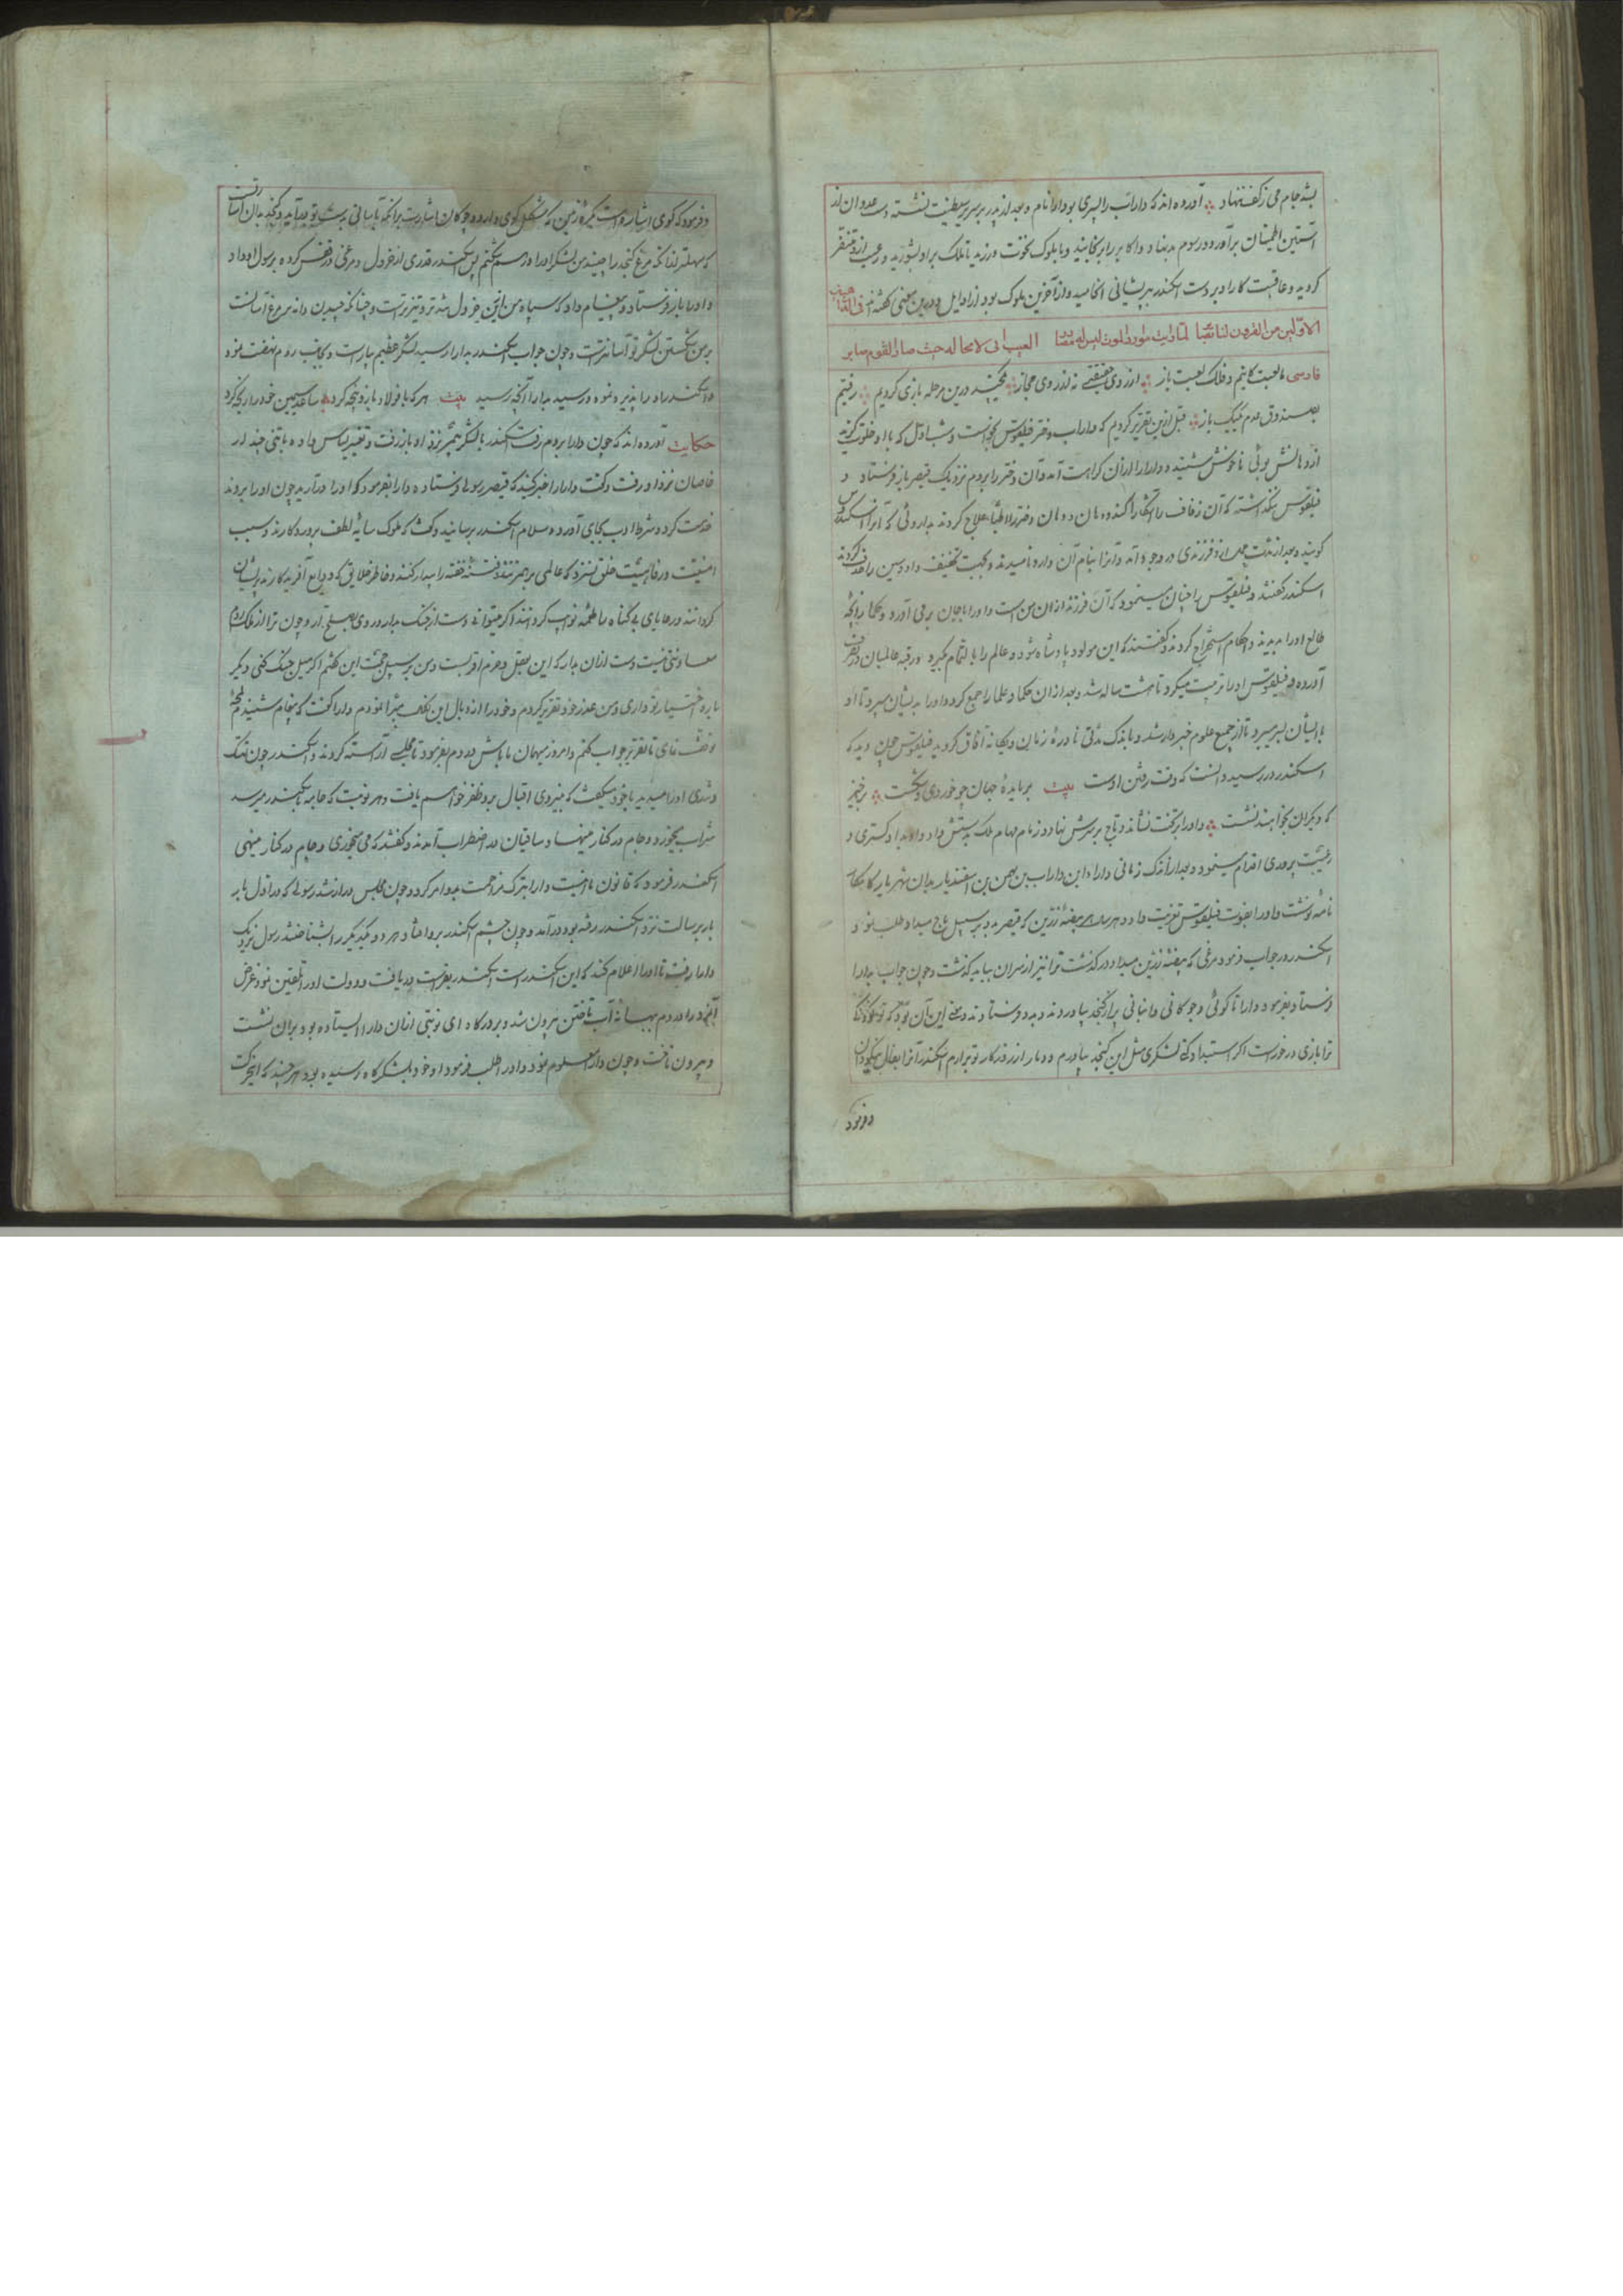 بشد جام می ز کف بنهاد آورده اند که داراب را پسری بود دارا نام و بعد از پدر بر سریر سلطنت نشسته دست عدوان از
آستین اطمینان برآورد و رسوم بد نهاد و اکابر را برنجانید و با ملوک نخوت ورزید تا ملک برو بشورید و رعیت ازو متنفر
کردید و عاقبت کار او بر دست اسکندر بپریشانی انجامید و او آخرین ملوک بود از اوایل و درین معنی گفته اند فی الذاهبین
الاولین من القرون لنا بصائر لما رایت مواردا للموت لیس لها مصادر ایقنت انی لا محاله حیث صار القوم صایر
فارسی ما لعبتکانیم و فلک لعبت باز از روی حقیقتی نه از روی مجاز یکچند درین مرحله بازی کردیم رفتیم
بصندوق عدم یک یک باز قبل ازین تقریر کردیم که داراب دختر فیلقوس بخواست و شب اول که با او خلوت کزید
از دهانش بوئی ناخوش شنید و دارا را از آن کراهت آمد و آن دختر را بروم نزدیک قیصر باز فرستاد و
فیلقوس نکذاشته که آن زفاف آشکارا کند و دهان دختر را اطبا علاج کردند بداروئی که آنرا اسکندروس
کویند و بعد از مدت حمل از و فرزندی در وجود آمد و آنرا بنام آن دارو نامیدند و بجهت تخفیف واو و سین را حذف کردند
اسکندر کفتند و فیلقوس چنان مینمود که آن فرزند از آن من است و او را با جهان برمی آورد و حکما زایچه
طالع او را بدیدند و احکام استخراج کردند و کفتند که این مولود پادشاه شود و عالم را بالتمام بکیرد و رقبه عالمیان در تصرف
آورد و فیلقوس او را تربیت میکرد تا هشت ساله شد و بعد از آن حکما و علما را جمع کرد و او را بدیشان سپرد تا او
بدیشان بسر میبرد تا از جمیع علوم خبردار شد و باندک مدتی نادره زمان و یکانه آفاق کردید فیلقوس چون دید که
اسکندر در رسید دانست که وقت رفتن اوست بیت بر مایده جهان چو خوردی و نشست برخیز
که دیکران بخواهند نشست و او را بر تخت نشاند و تاج بر سرش نهاد و زمام مهام ملک بدستش داد و او بدادکستری و
رعیت پروری اقدام مینمود و بعد از اندک زمانی دارا ابن داراب بن بهمن بن اسفندیار بدان شهریار کامکار
نامه نوشت و او را بفوت فیلقوس تعزیت داد و هر سال بیضه زرین که قیصر بر سبیل باج میداد طلب نمود
اسکندر در جواب فرمود مرغی که بیضه زرین میداد درکذشت ترا نیز از سر آن بباید کذشت و چون جواب بدارا
فرستاد بفرمود دارا تا کوئی و چوکانی و انبانی پر از کنجد بیاوردند و بدو فرستادند و معنی این آن بود که تو کودکی
ترا بازی درخورست اگر استبداد کنی لشکری مثل این کنجد بیاورم و دمار از روزکار تو برارم اسکندر آنرا بفال نیکو دانست
و فرمود
و فرمود که کوی اشارتست بکره زمین که بشکل کوی دارد و چوکان اشارت بر آنکه بآسانی بدست تو درآید و کنجد بدان اشارتست
که سهلتر از آنکه مرغ کنجد را چیند من لشکر او را درهم شکنم پس اسکندر قدری از خردل و مرغی در قفس کرده برسول او داد
و او را باز فرستاد و پیغام داد که سپاه من ازین خردل تندتر و تیزترست و چنانکه چیدن دانه بر مرغ آسانست
بر من شکستن لشکر تو آسانترست و چون جواب اسکندر بدارا رسید لشکر عظیم بیاراست و بجانب روم نهضت نمود
و اسکندر او را پذیره نمود و رسید بدارا آنچه رسید بیت هر که با فولاد بازو پنجه کرد ساعد سیمین خود را رنجه کرد
حکایت آورده اند که چون دارا بروم رفت اسکندر با لشکر بهم نزد او باز رفت و تغییر لباس داده با تنی چند از
خاصان نزد او رفت و کفت دارا را خبر کنید که قیصر رسولی فرستاده دارا بفرمود که او را درآرید چون او را بردند
خدمت کرد و شرط ادب بجای آورد و سلام اسکندر برسانید و کفت که ملوک سایه لطف پروردکارند و سبب
امنیت و رفاهیت خلق نسزد که عالمی برهم زنند و فتنه خفته را بیدار کنند و خاطر خلایق که ودایع آفریدکارند پریشان
کردانند و رعایای بی کناه را طعمه نوایب کردانند اگر میتوانی دست از جنک بدار و روی بصلح آر و چون ترا از ملک روم
معاونتی نیست دست از آن بدار که این بعقل و حزم اقربست و من بر سبیل حجت این کفتم اگر میل جنک کنی دیگر
باره اختیار تو داری و من عذر خود تقریر کردم و خود را از وبال این مبرا نمودم دارا کفت که پیغام شنیدم لحظه
توقف نمای تا تقریر جواب کنم و امروز میهمان ما باش و بفرمود تا مجلسی آراسته کردند و اسکندر چون تنک
و تندی او را میدید با خود میکفت که بنیروی اقبال برو ظفر خواهم یافت و هر نوبت که جام باسکندر میرسید
شراب میخورد و جام در کنار مینهاد ساقیان در اضطراب آمدند و کفتند که می میخوری و جام در کنار مینهی
اسکندر فرمود که قانون ما اینست دارا بترک مزاحمت او امر کرد و چون مجلس دراز شد رسولی که در اول بار
بار برسالت نزد اسکندر رفته بود درآمد و چون چشم اسکندر برو افتاد و هر دو یکدیگر را بشناختند رسول نزدیک
دارا رفت تا او را اعلام کند که این اسکندرست اسکندر بفراست دریافت و دولت او را تلقین نمود غرض
آنکه در آن دم ببهانه آب تافتن بیرون شد و بر درکاه اسپ نوبتی از آن دارا ایستاده بود بر آن نشست
و بیرون تاخت و چون دارا معلوم نمود و او را طلب فرمود او خود بلشکرکاه رسیده بود هر چند که این حرکت